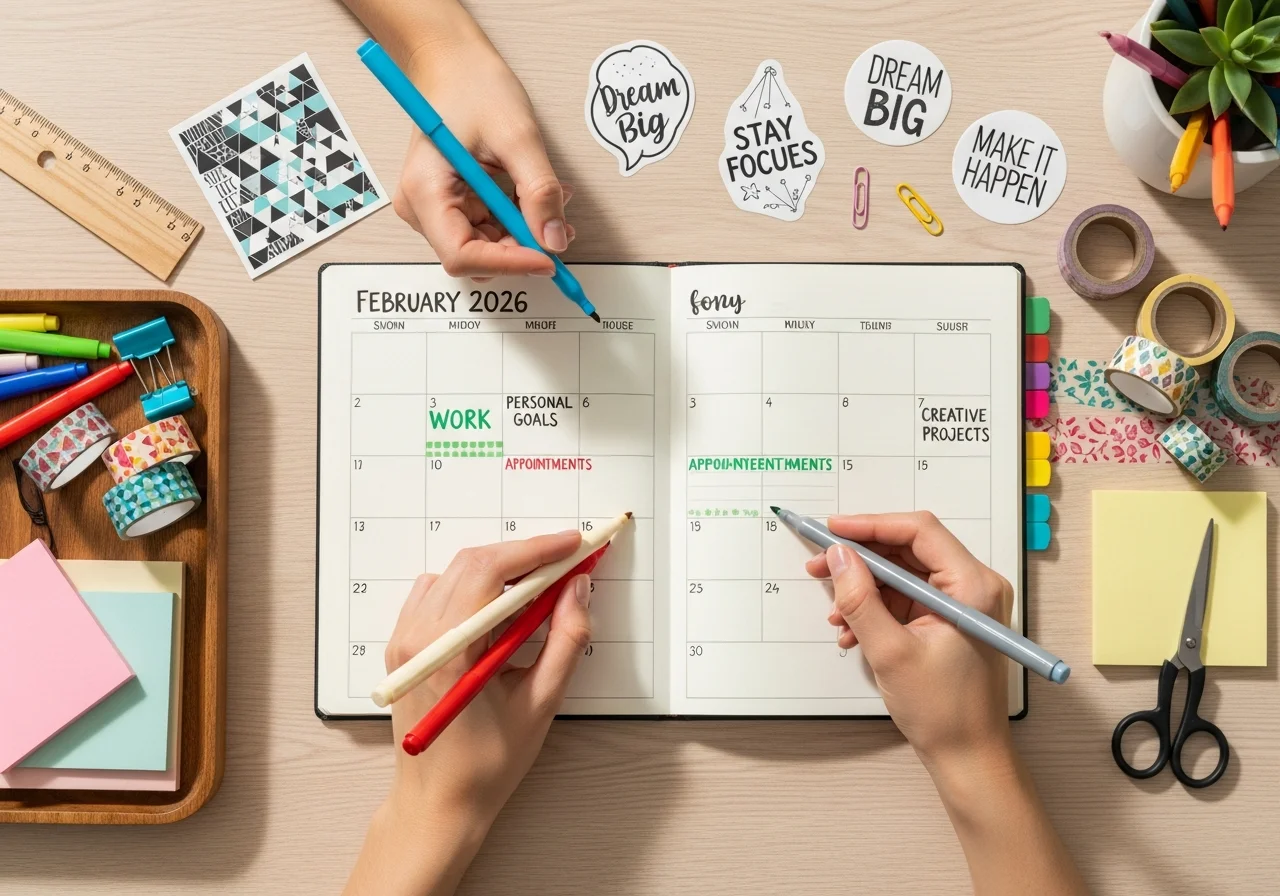 Dream
Big
STAY
FOCUES
DREAM
BIG
MAKE IT
HAPPEN
FEBRUARY 2026
fony
SMOIN MIDOY MIHOFE TIOUSE
SMOIN WIIULY TEIIING SUUSR
2 3 WORK PERSONAL 6
GOALS
3 4 8 7
CREATIVE
PROJECTS
11 10 APPOINTMENTS
APPOI-NYEENTMENTS 15 15
13 17 18 16
15 18
22
25 24
28
30